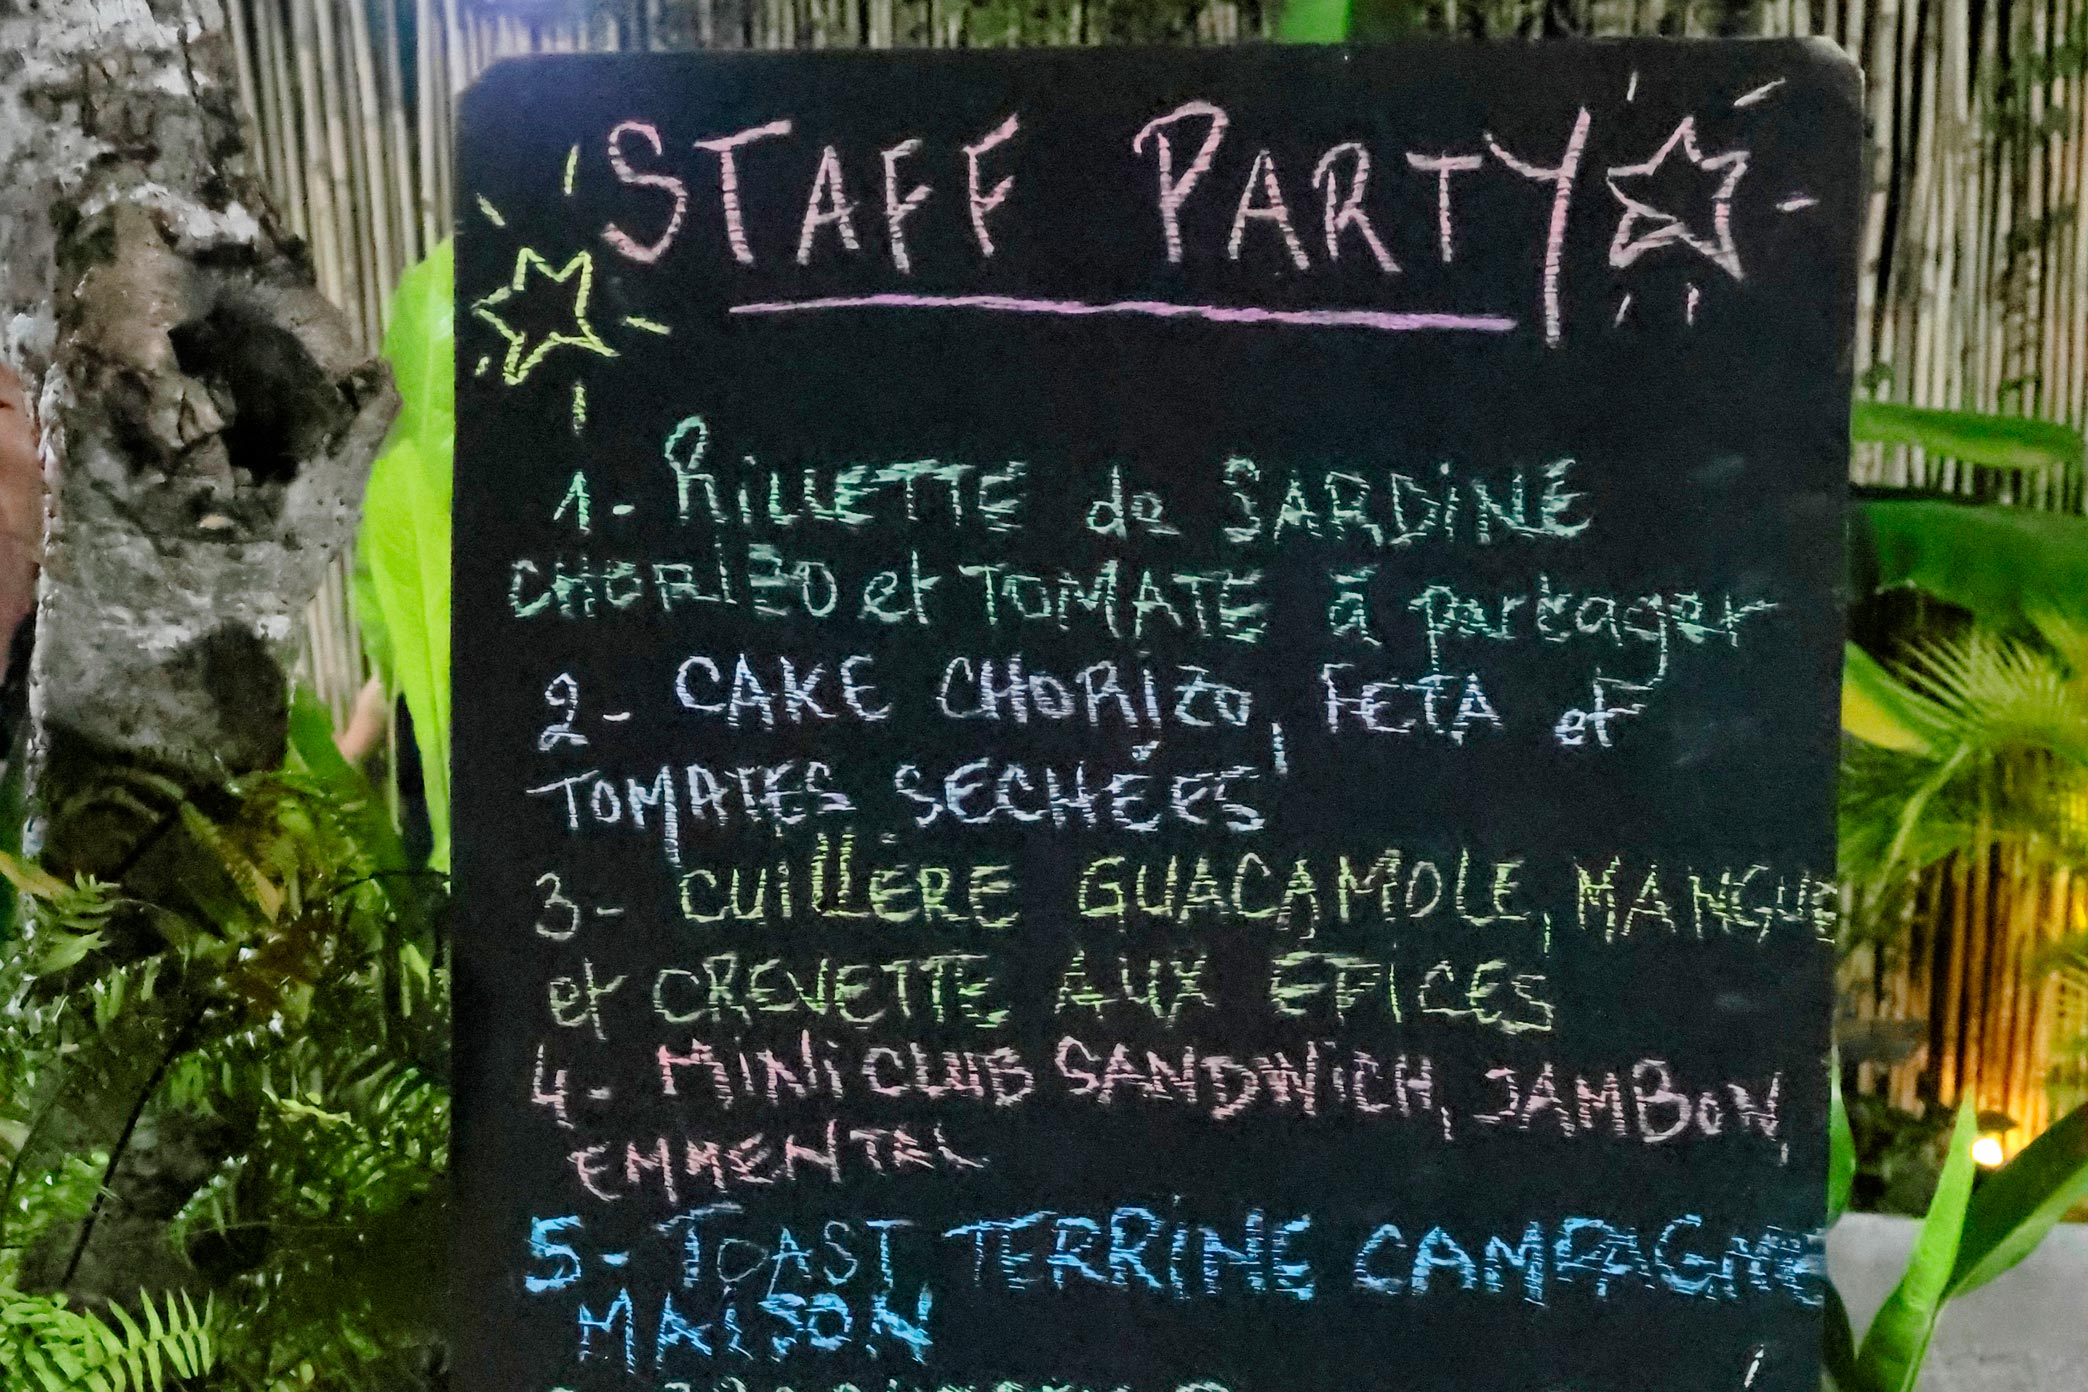 STAFF PARTY
1- RiLLETTE de SARDINE
CHORIZO et TOMATE à partager
2- CAKE CHORIZO, FETA et
TOMATES SECHÉES
3- CUILLÈRE GUACAMOLE, MANGUE
et CREVETTE AUX EPICES
4- MINI CLUB SANDWICH, JAMBON,
EMMENTAL
5- TOAST TERRINE CAMPAGNE
MAISON